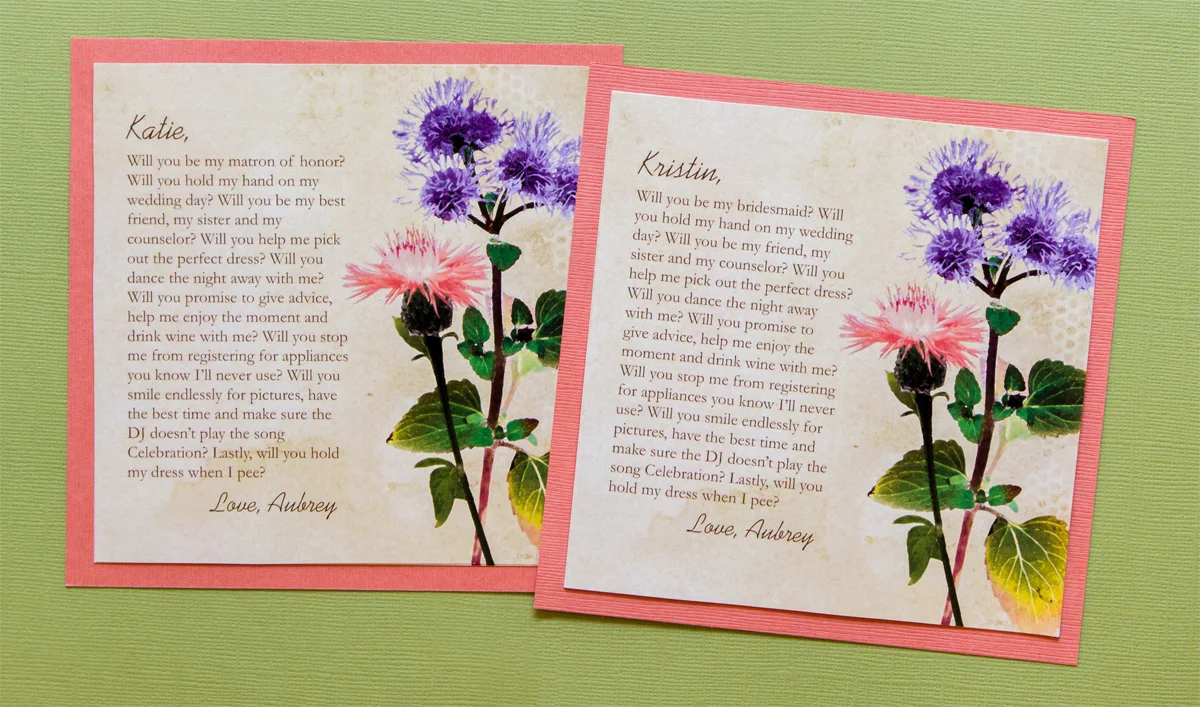 Katie,
Will you be my matron of honor?
Will you hold my hand on my
wedding day? Will you be my best
friend, my sister and my
counselor? Will you help me pick
out the perfect dress? Will you
dance the night away with me?
Will you promise to give advice,
help me enjoy the moment and
drink wine with me? Will you stop
me from registering for appliances
you know I'll never use? Will you
smile endlessly for pictures, have
the best time and make sure the
DJ doesn't play the song
Celebration? Lastly, will you hold
my dress when I pee?
Love, Aubrey
Kristin,
Will you be my bridesmaid? Will
you hold my hand on my wedding
day? Will you be my friend, my
sister and my counselor? Will you
help me pick out the perfect dress?
Will you dance the night away
with me? Will you promise to
give advice, help me enjoy the
moment and drink wine with me?
Will you stop me from registering
for appliances you know I'll never
use? Will you smile endlessly for
pictures, have the best time and
make sure the DJ doesn't play the
song Celebration? Lastly, will you
hold my dress when I pee?
Love, Aubrey